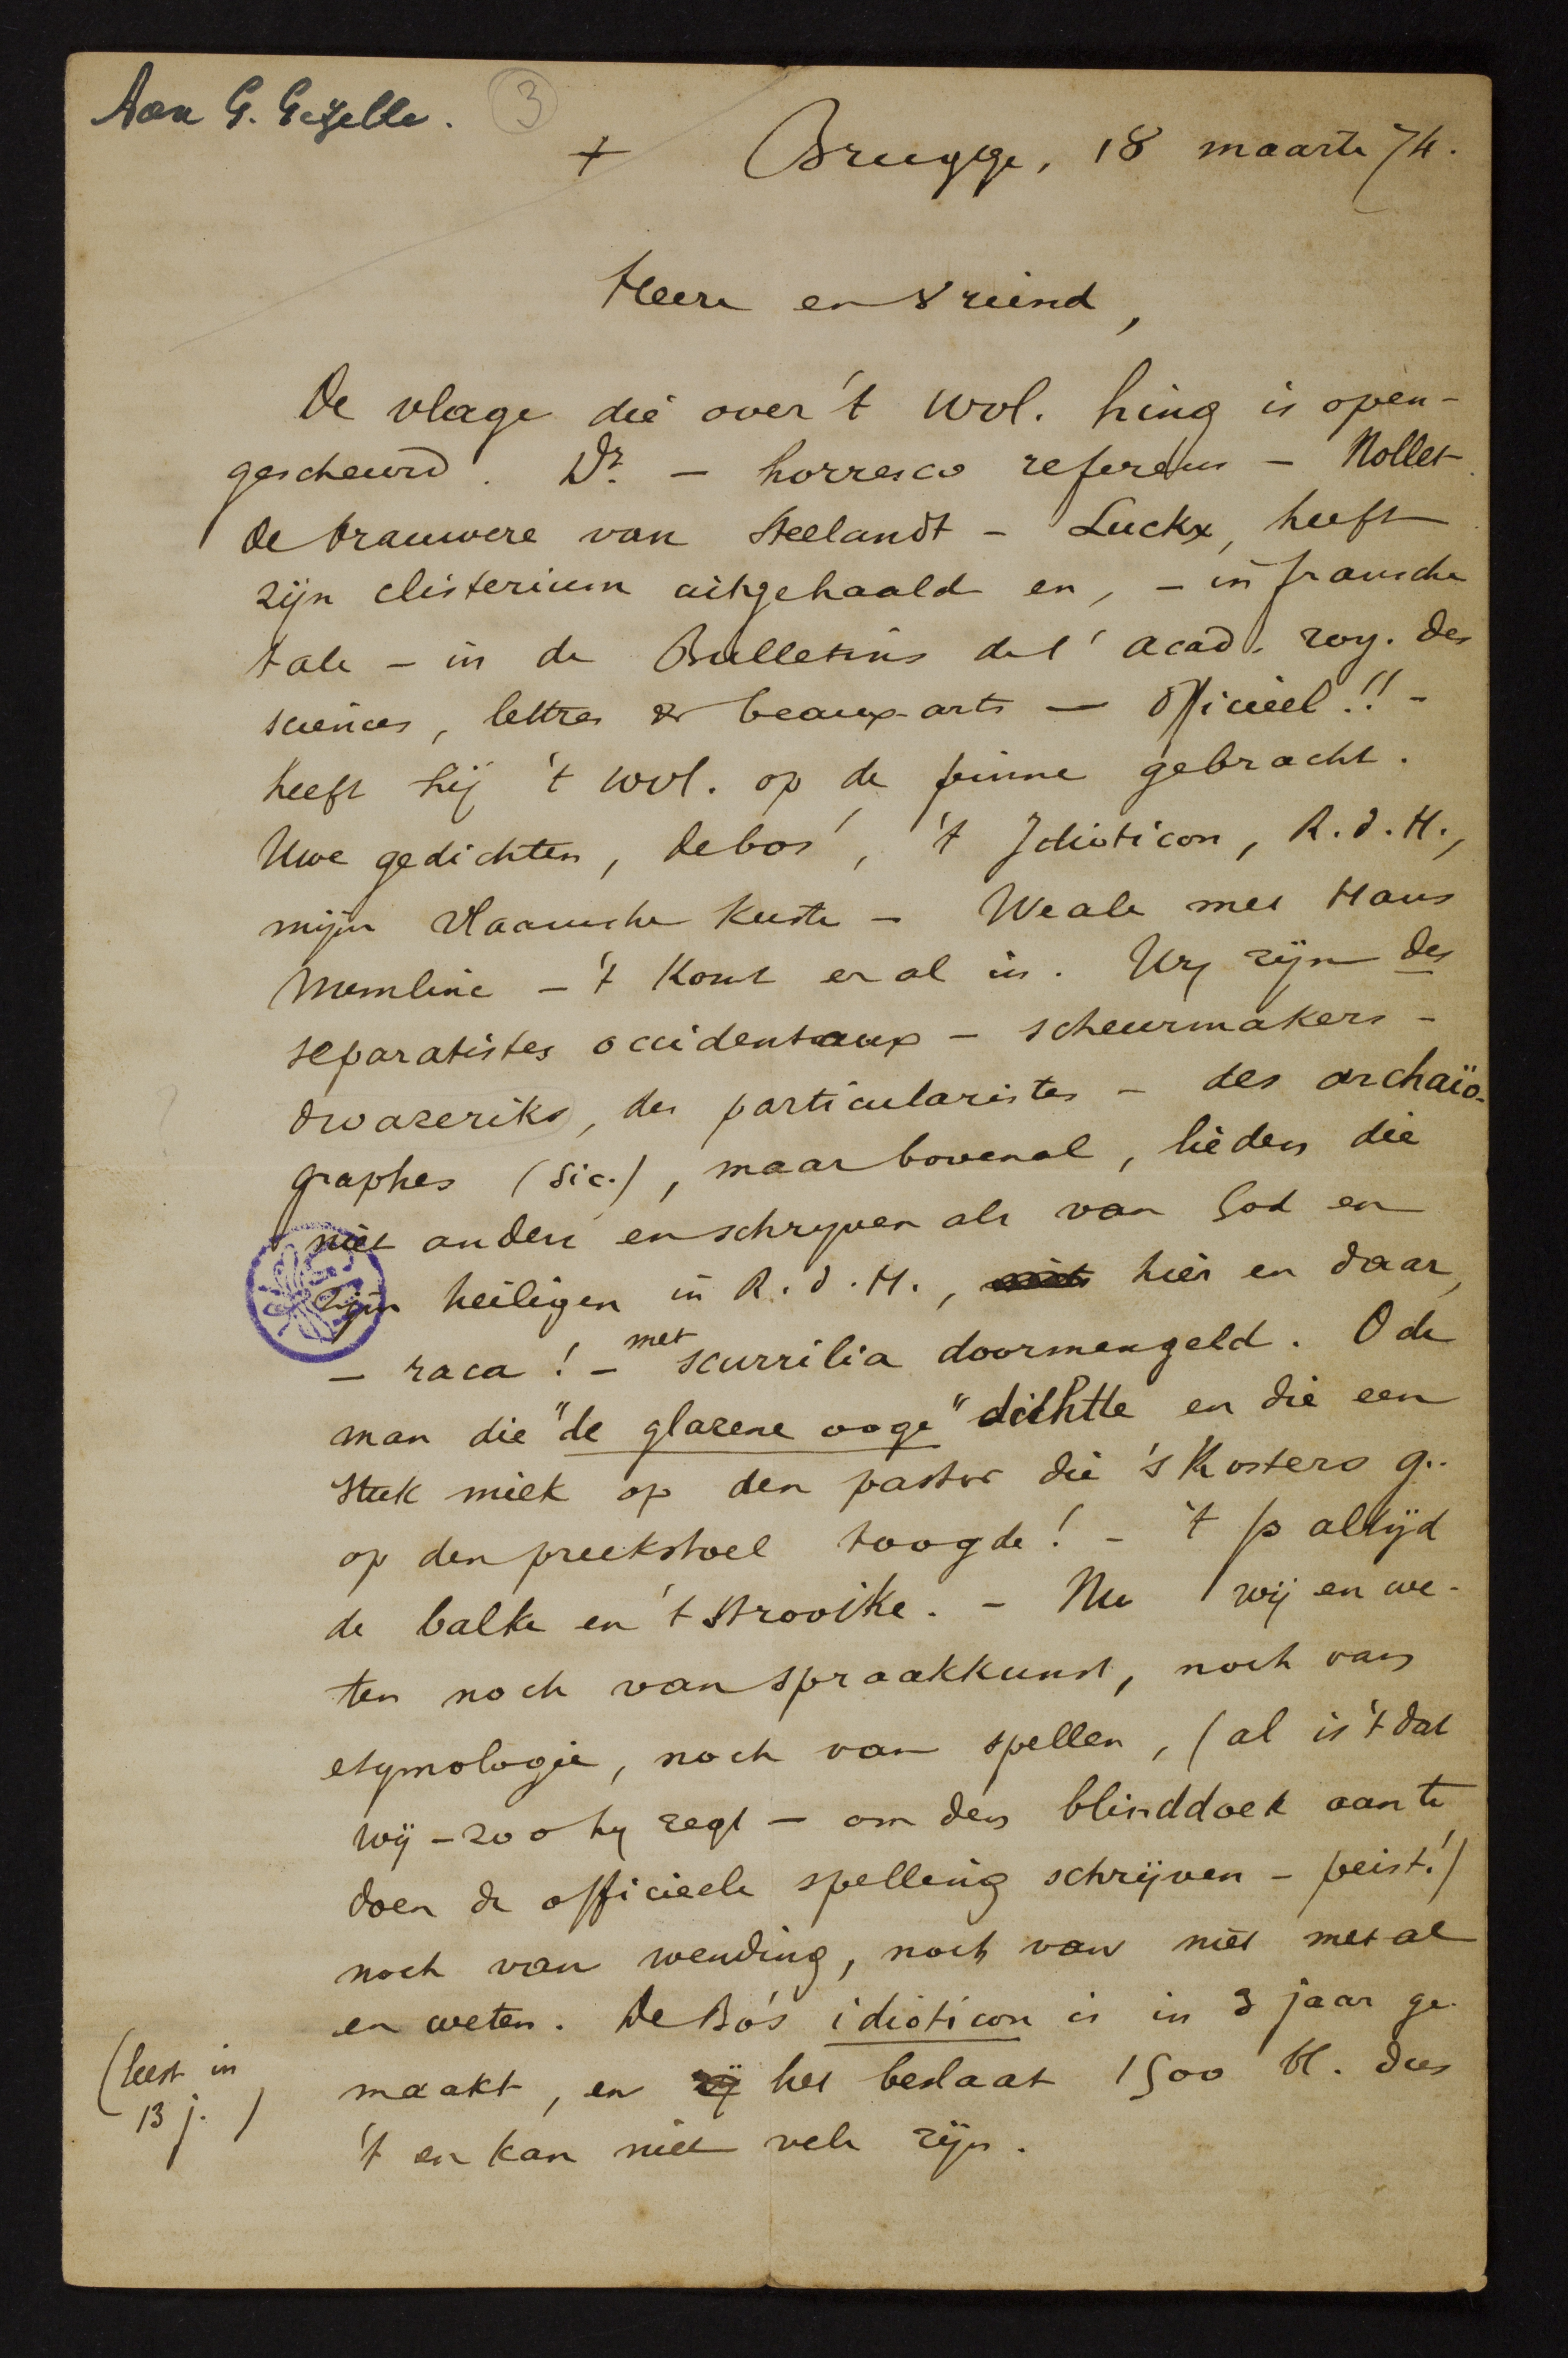 Aan G. Gezelle. 3
+ Brugge, 18 maarte 74.
Heere en vriend,
De vlage die over 't Wvl. hing is open-
gescheurd. Dr. – horresco referens – Nollet
de brauwere van Steelandt – Luckx, heeft
zijn clisterium uitgehaald en, – in fransche
tale – in de Bulletins de l' acad. roy. des
sciences, lettres & beaux-arts – Officieel!! –
heeft hij 't Wvl. op de pinne gebracht.
Uwe gedichten, debos', 't Idioticon, R.d.H.,
mijn Vlaamsche Kuste – Weale met Hans
Memlinc – 't komt er al in. Wy zijn des
separatistes occidentaux – scheurmakers –
dwazeriks, des particularistes – des archaïo-
graphes (sic.), maar bovenal, lieden die
niet anders en schryven als van God en
zijn heiligen in R.d.H., hier en daar,
– raca! – met scurrilia doormengeld. O de
man die "de glazene ooge" dichtte en die een
stuk miek op den pastor die 's Kosters g..
op den preekstoel toogde! – 't Is altijd
de balke en 't strooike. – Nu wij en we-
ten noch van spraakkunst, noch van
etymologie, noch van spellen, (al is 't dat
wij – zoo hy zegt – om den blinddoek aan te
doen de officieele spelling schrijven – peist!)
noch van wending, noch van niet met al
en weten. De Bo's idioticon is in 3 jaar ge-
(leest in
13 j.)
maakt, en zij het beslaat 1500 bl. dus
't en kan niet vele zijn.